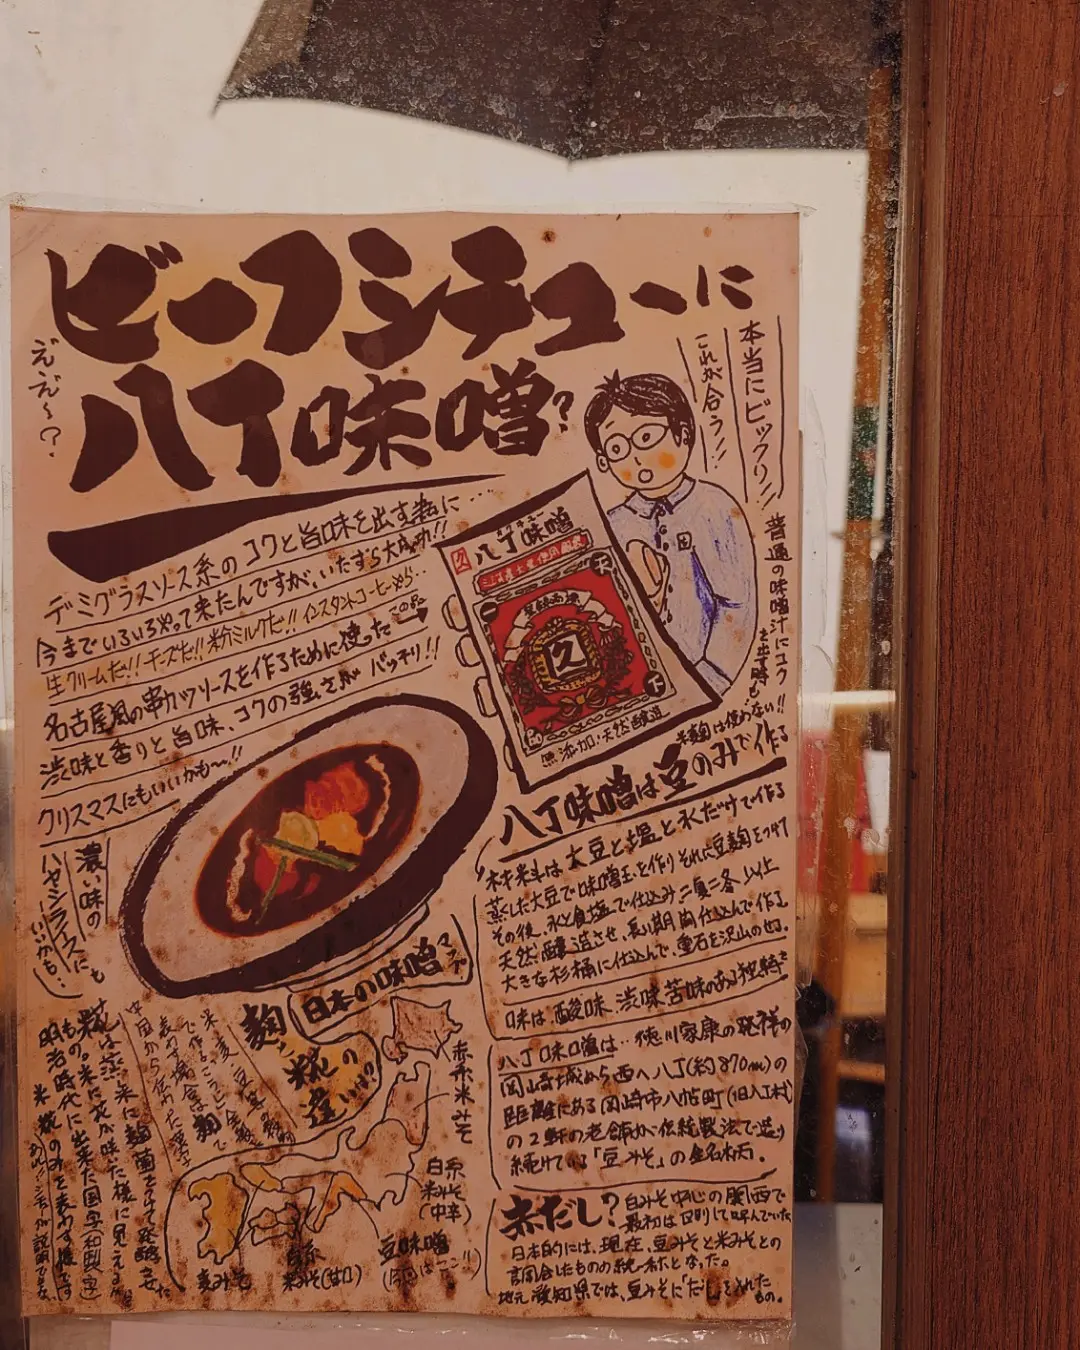 ビーフシチューに
ええ〜?
八丁味噌?
本当にビックリ!!
これが合う!!
デミグラスソース系のコクと旨味を出す為に…
今までいろいろやって来たんですが、いたずら大成功!!
生クリームだ!!チーズだ!!粉ミルクだ!!インスタントコーヒーやら…
名古屋風の串カツソースを作るために使った この品
渋味と香りと旨味、コクの強さが バッチリ!!
クリスマスにもいいかも〜!!
濃い味の
ハヤシライスにも
いいかも。
八丁味噌
久
無添加・天然醸造
普通の味噌汁にコク
を出す時も!!
米麹は使わない!!
八丁味噌は豆のみで作る
材料は大豆と塩と水だけで作る
蒸した大豆で味噌玉を作りそれに豆麹をつけ
その後、水と食塩で仕込み二夏二冬以上
天然醸造させ、長い期間仕込んで作る
大きな杉桶に仕込んで、重石を沢山のせ。
味は、酸味、渋味、苦味のある独特さ
八丁味噌は…徳川家康の発祥の
岡崎城から西へ八丁(約870m)の
距離にある岡崎市八帖町(旧八丁村)
の2軒の老舗が伝統製法で造り
続けている「豆みそ」の銘柄。
赤だし? 白みそ中心の関西で
最初は区別して呼んでいた
日本的には、現在、豆みそと米みそとの
調合したものの総称となった。
地元愛知県では、豆みそに「だし」を入れたもの。
日本の味噌マップ
赤系米みそ
白系
米みそ
(中辛)
豆味噌
(今回はここ!!)
米みそ(甘口)
麦みそ
麹と糀の違いは?
米・麦・豆等の穀物
で作る
表わす場合は麹で
中国から伝わった漢字
糀は蒸米に麹菌をつけて発酵させた
もの。米に花が咲いた様に見える
明治時代に出来た国字(和製漢字)
米糀のみを表わす様です